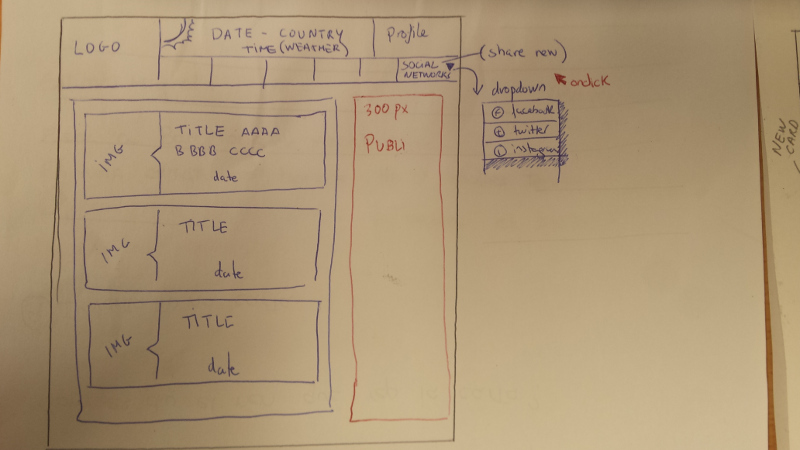 LOGO
DATE - COUNTRY
TIME (WEATHER)
Profile
SOCIAL
NETWORKS
(share new)
onclick
dropdown
facebook
twitter
instagram
IMG
TITLE AAAA
BBBB CCCC
date
IMG
TITLE
date
IMG
TITLE
date
300 px
PUBLI
NEW
CARD